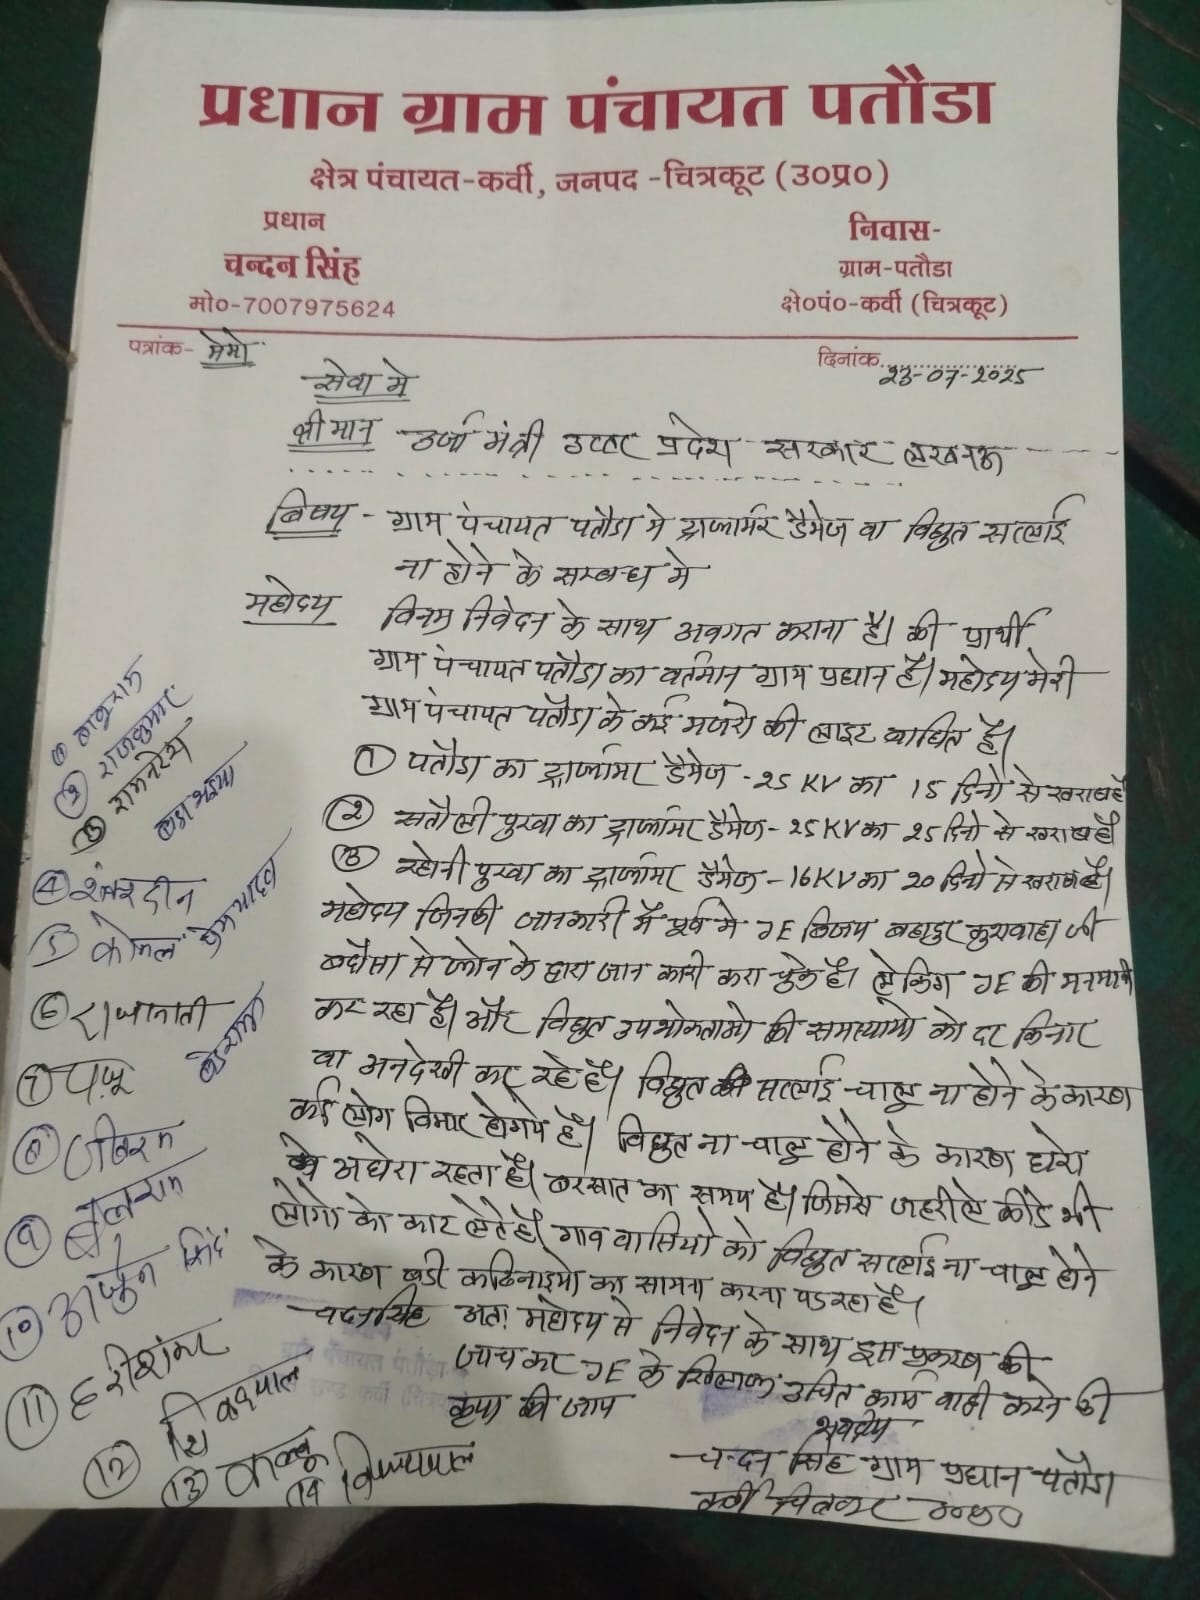 प्रधान ग्राम पंचायत पतौडा
क्षेत्र पंचायत-कर्वी, जनपद -चित्रकूट (उ०प्र०)
प्रधान
चन्दन सिंह
मो०-7007975624
निवास-
ग्राम-पतौडा
क्षे०पं०-कर्वी (चित्रकूट)
पत्रांक- मेमो
दिनांक 23-07-2025
सेवा मे
श्रीमान उर्जा मंत्री उत्तर प्रदेश सरकार लखनऊ
विषय - ग्राम पंचायत पतौडा मे ट्रान्सफार्मर डैमेज वा विद्युत सप्लाई
ना होने के सम्बन्ध मे
महोदय विनम्र निवेदन के साथ अवगत कराना है। की प्रार्थी
ग्राम पंचायत पतौडा का वर्तमान ग्राम प्रधान है। महोदय मेरी
ग्राम पंचायत पतौडा के कई मजरो की लाइट बाधित है।
① पतौडा का डैमेज - 25 KV का 15 दिनो से खराब है
② सतौली पुरवा का डैमेज - 25 KV का 25 दिनो से खराब है
③ पुरवा का डैमेज - 16 KV का 20 दिनो से खराब है।
महोदय जिनकी जानकारी मैं पूर्व मे JE विजय बहादुर कुशवाहा जी
से फोन के द्वारा जान कारी करा चुके है। लेकिन JE की मनमानी
कर रहा है। और विद्युत उपभोक्ताओ की समस्याओ को दर किनार
वा अनदेखी कर रहे है। विद्युत की सप्लाई चालू ना होने के कारण
कई लोग विमार होगये है। विद्युत ना चालू होने के कारण घरो
मे अधेरा रहता है। बरसात का समय है। जिससे जहरीले कीडे भी
लोगो को काट लेते है। गाव वासियो को विद्युत सप्लाई ना चालू होने
के कारण बडी कठिनाइयो का सामना करना पड रहा है।
चन्दनसिंह अतः महोदय से निवेदन के साथ इस प्रकरण की
जाच कर JE के खिलाफ उचित कार्य वाही करने की
कृपा की जाय
भवदीय
चन्दन सिंह ग्राम प्रधान पतौडा
कर्वी चित्रकूट
① बाबूराम
② राजकुमार
③ रामनरेश
④ शंकरदीन
⑤ कोमल
⑥
⑦ पप्पू
⑧
⑨ बलराम
⑩ अर्जुन सिंह
⑪ हरीशंकर
⑫ शिवदयाल
⑬ कल्लू
14